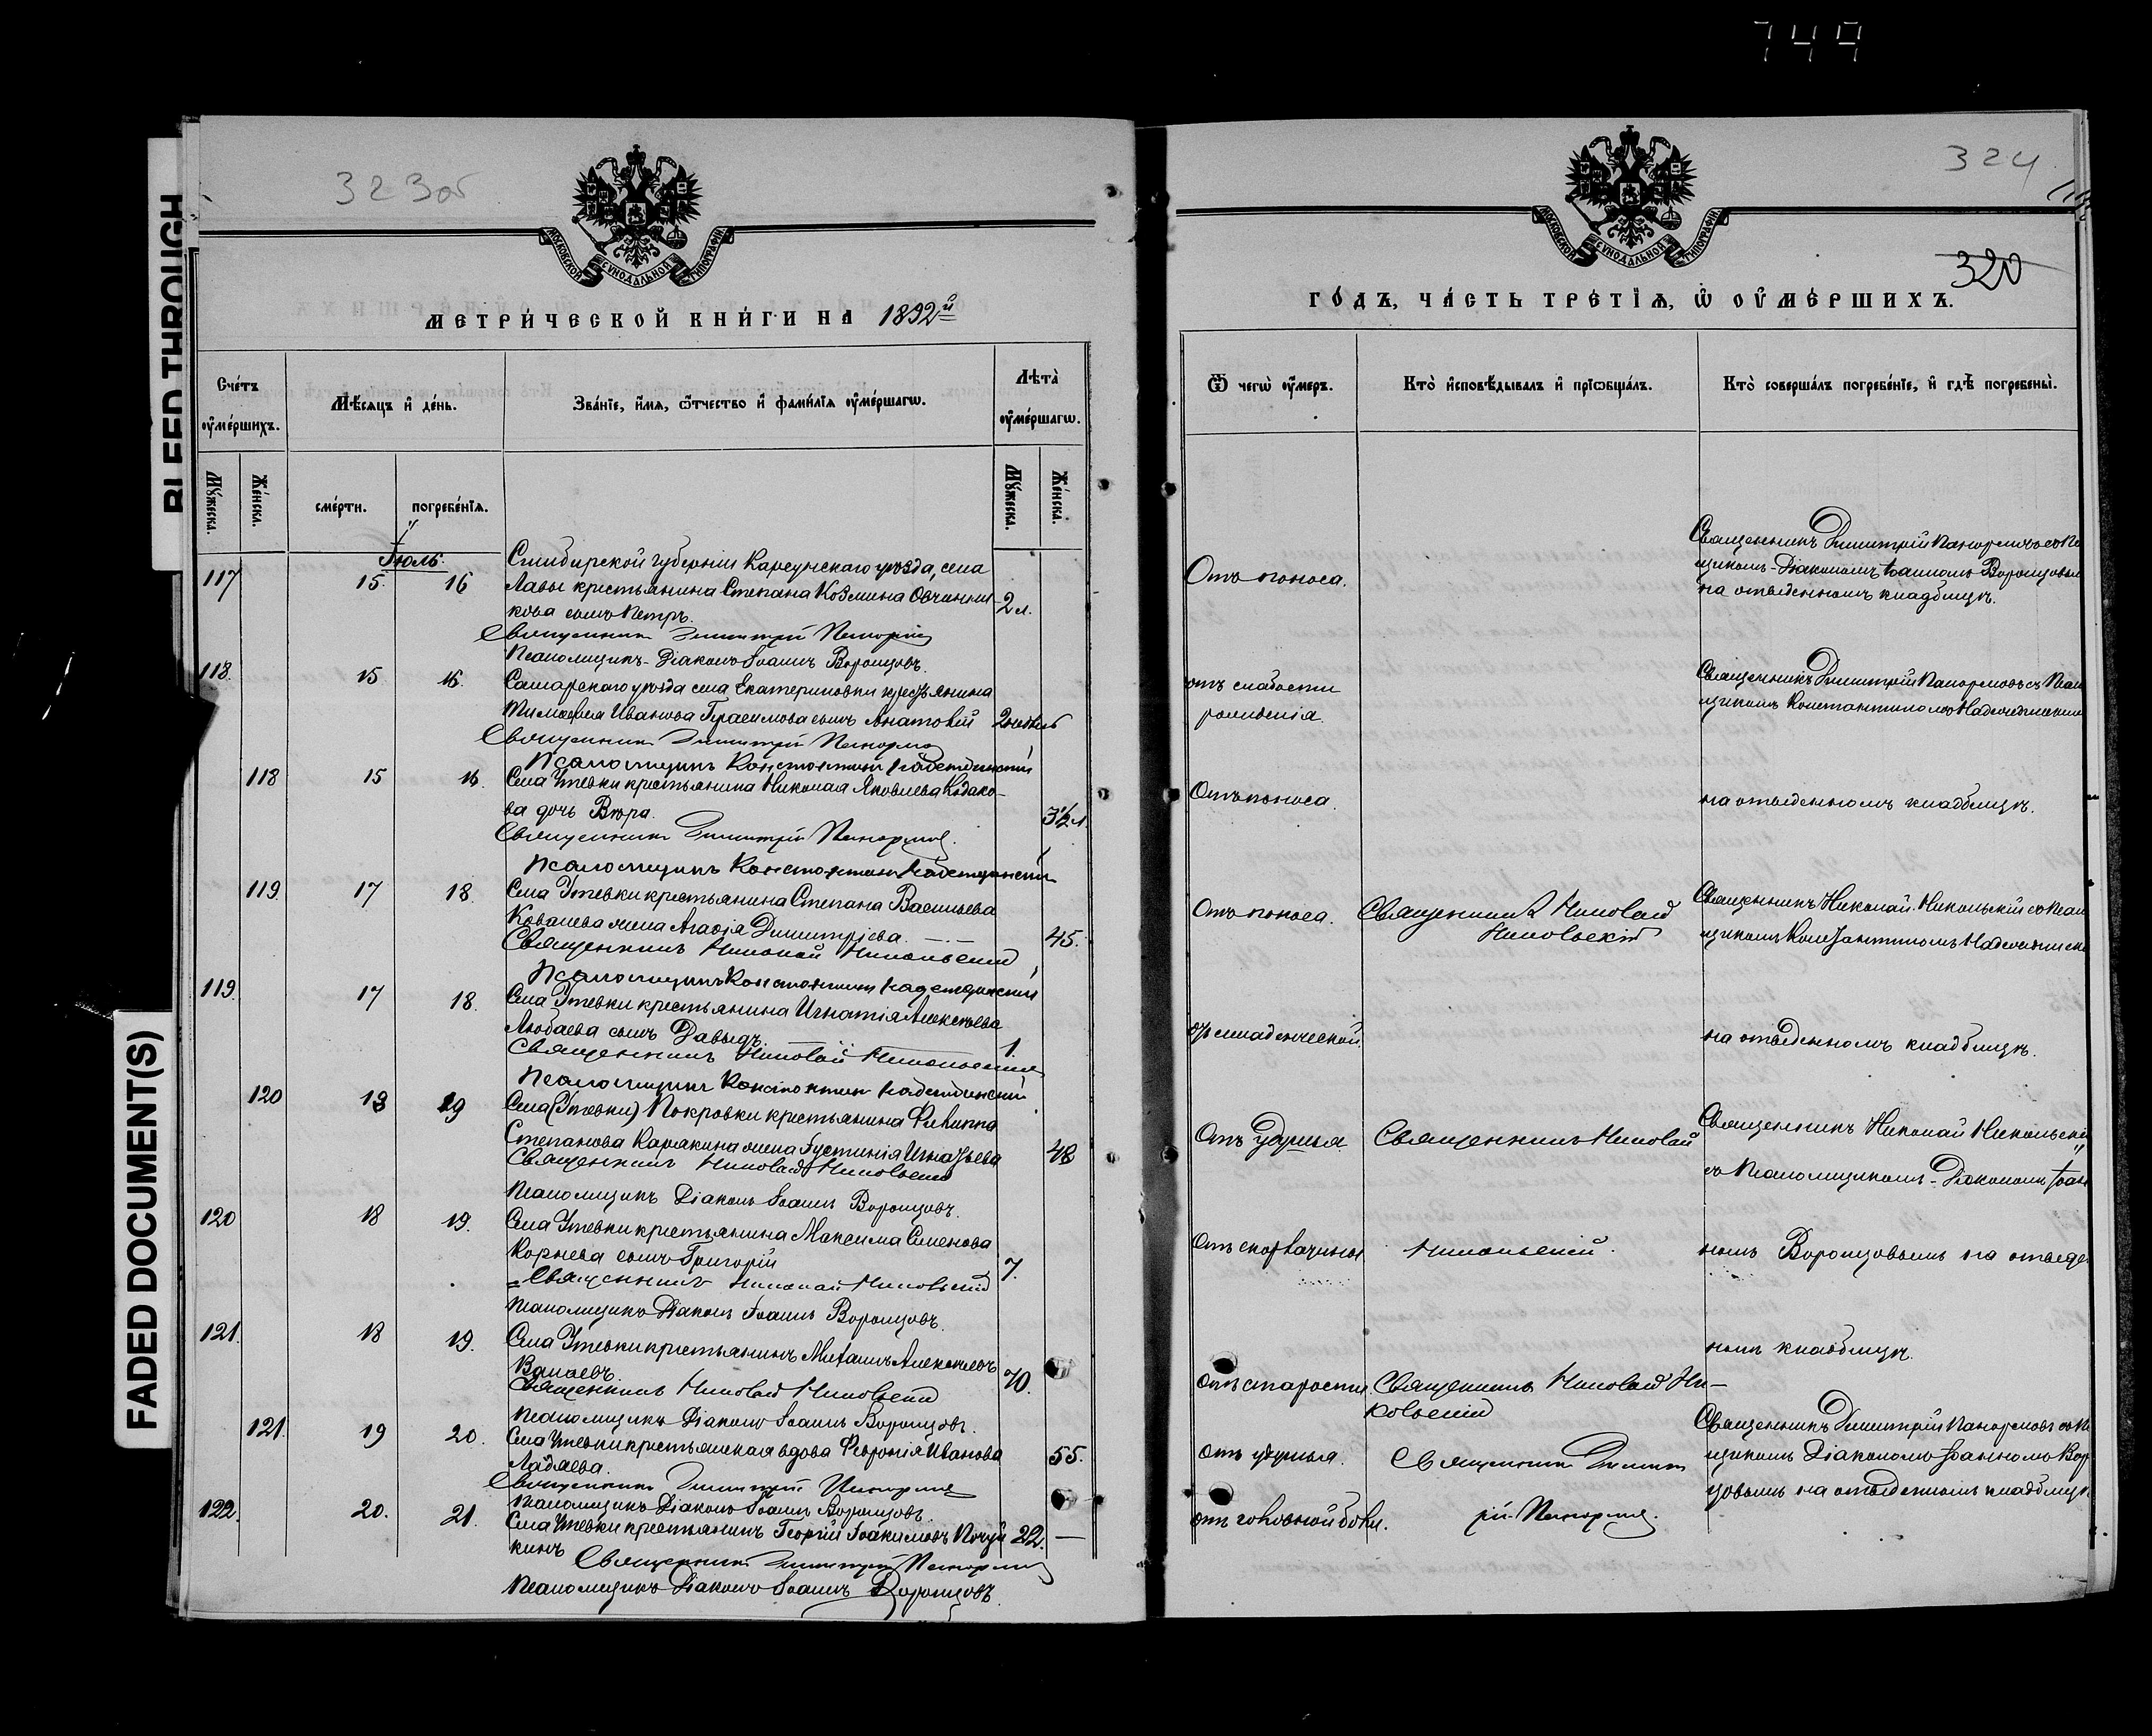 749
323об
МОСКОВСКОЙ СѴНОДАЛЬНОЙ ТИПОГРАФІИ
МЕТРИЧЕСКОЙ КНИГИ НА 1892й
Счетъ оумершихъ.
Мѣсяцъ и день.
Званіе, имя, отчество и фамилія оумершагѡ.
Лѣта оумершагѡ.
Мужеска.
Женска.
смерти.
погребенія.
Мужеска.
Женска.
Іюль.
117 15. 16 Симбирской губерніи Карсунскаго уѣзда, села
Лавы крестьянина Степана Козмина Овчинни- 2 л.
кова сынъ Петръ.
Священникъ Димитрій Панормовъ
Псаломщикъ-Діаконъ Іоаннъ Воронцовъ.
118. 15 16. Самарскаго уѣзда села Екатериновки крестьянина
Тимофея Иванова Герасимова сынъ Анатолій 2 недѣль
Священникъ Димитрій Панормовъ
Псаломщикъ Константинъ Надеждинскій
118 15 16. Села Утевки крестьянина Николая Яковлева
ва дочь Вѣра. 3½ л.
Священникъ Димитрій Панормовъ.
Псаломщикъ Константинъ Надеждинскій
119. 17 18. Села Утевки крестьянина Степана Васильева
Ковалева жена Агафія Димитріева. 45.
Священникъ Николай Никольскій
Псаломщикъ Константинъ Надеждинскій
119. 17 18. Села Утевки крестьянина Игнатія Алексѣева
Любаева сынъ Давыдъ. 1.
Священникъ Николай Никольскій
Псаломщикъ Константинъ Надеждинскій
120 18 19 Села (Утевки) Покровки крестьянина Филиппа
Степанова Каракина жена Іустинія Игнатьева 48
Священникъ Николай Никольскій
Псаломщикъ Діаконъ Іоаннъ Воронцовъ.
120 18 19. Села Утевки крестьянина Максима Семенова
Корнева сынъ Григорій 7.
Священникъ Николай Никольскій
Псаломщикъ Діаконъ Іоаннъ Воронцовъ.
121. 18 19. Села Утевки крестьянинъ Михаилъ Алексѣевъ
70.
Священникъ Николай Никольскій
Псаломщикъ Діаконъ Іоаннъ Воронцовъ.
121. 19 20. Села Утевки крестьянская вдова Февронія Иванова
Ладаева. 55.
Священникъ Димитрій Панормовъ
Псаломщикъ Діаконъ Іоаннъ Воронцовъ.
122. 20. 21. Села Утевки крестьянинъ Георгій Іоакимовъ 22. —
кинъ
Священникъ Димитрій Панормовъ
Псаломщикъ Діаконъ Іоаннъ Воронцовъ.
324
320
МОСКОВСКОЙ СѴНОДАЛЬНОЙ ТИПОГРАФІИ
ГОДЪ, ЧАСТЬ ТРЕТІЯ, Ѡ ОУМЕРШИХЪ.
Ѿ чегѡ оумеръ.
Кто исповѣдывалъ и пріѡбщалъ.
Кто совершалъ погребеніе, и гдѣ погребены.
Отъ поноса.
Священникъ Димитрій Панормовъ съ Пса
щикомъ-Діакономъ Іоанномъ Воронцовым
на отведенномъ кладбищѣ.
отъ слабости
рожденія.
Священникъ Димитрій Панормовъ съ Псал
щикомъ Константиномъ Надеждинским
Отъ поноса. на отведенномъ кладбищѣ.
Отъ поноса. Священникъ Николай
Никольскій
Священникъ Николай Никольскій съ Псал
щикомъ Константиномъ Надеждинским
отъ младенческой. на отведенномъ кладбищѣ.
Отъ удушья. Священникъ Николай
Священникъ Николай Никольскій
съ Псаломщикомъ-Діакономъ Іоан
Отъ скорлатины. Никольскій.
номъ Воронцовымъ на отведен
номъ кладбищѣ.
отъ старости. Священникъ Николай Ни-
кольскій
Священникъ Димитрій Панормовъ съ Пса
отъ удушья. Священникъ Димит
щикомъ Діакономъ Іоанномъ Ворон
цовымъ на отведенномъ кладбищѣ
отъ головной боли. рій Панормовъ.
BLEED THROUGH
FADED DOCUMENT(S)